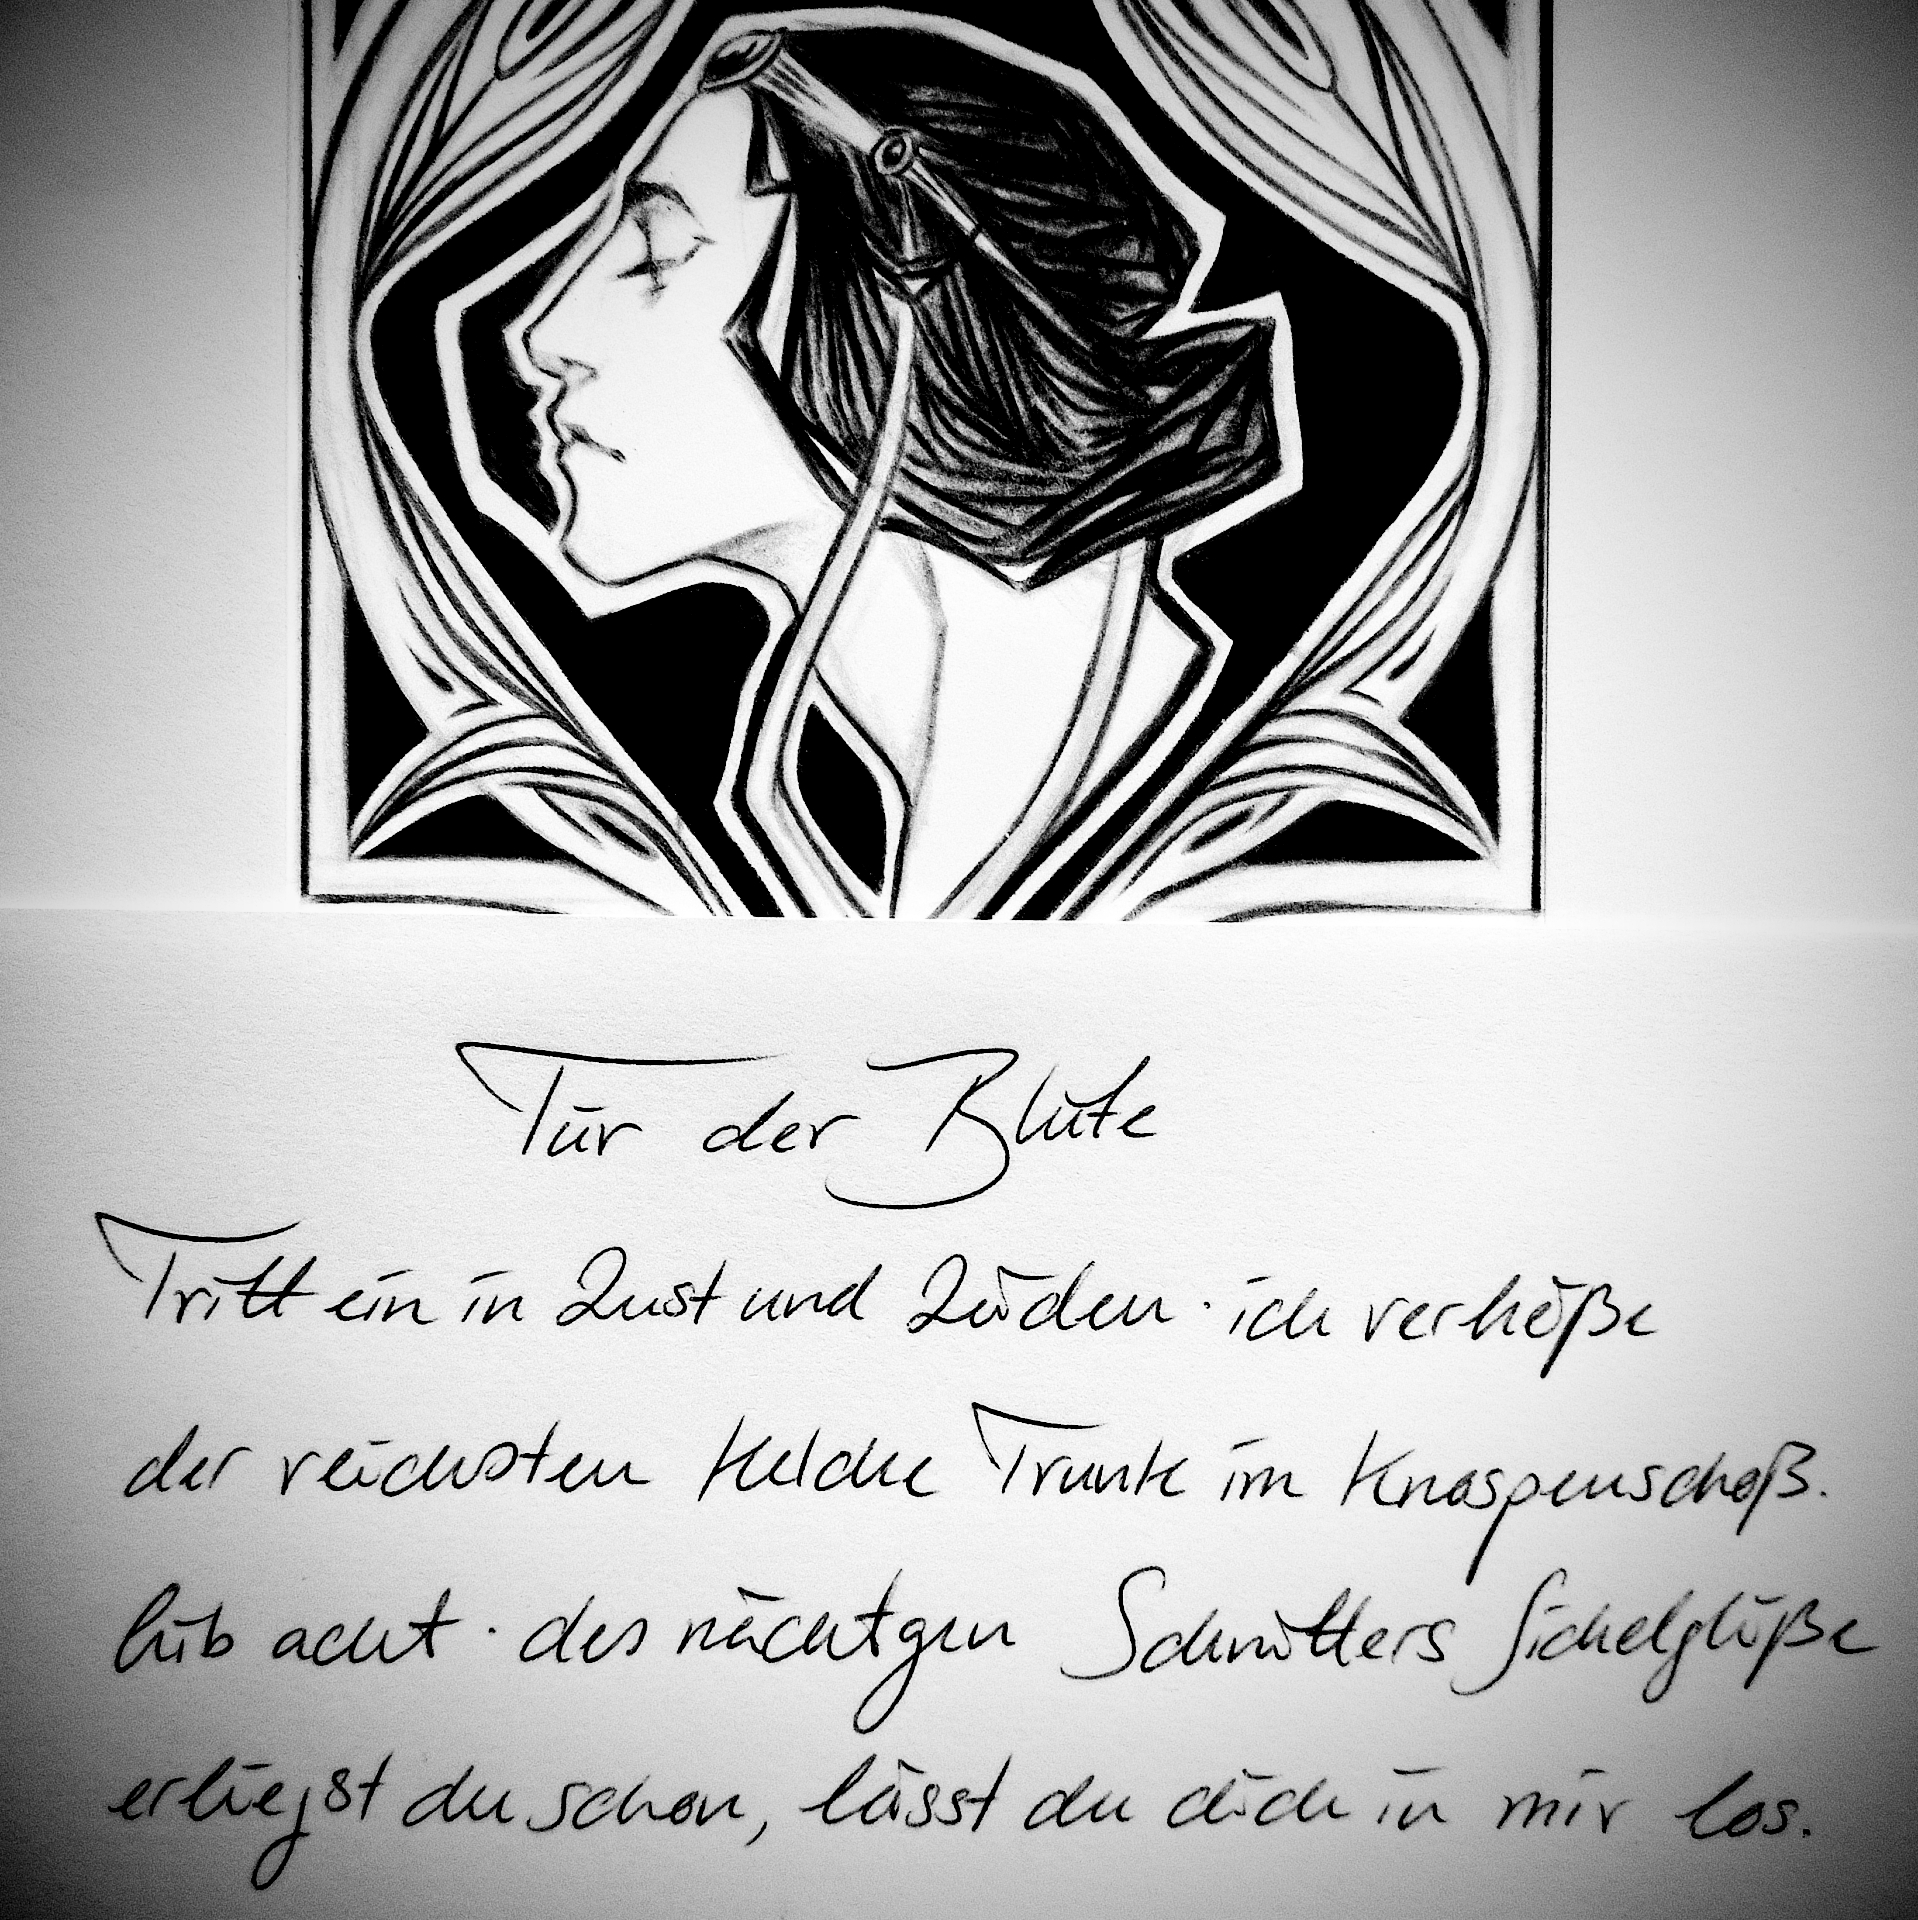 Tür der Blüte
Tritt ein in Lust und Leiden · ich verheiße
der reichsten Kelche Trunk im Knospenschoß.
acht · des nächtgen Schnitters Sichelgleiße
erliegst du schon, lässt du dich in mir los.